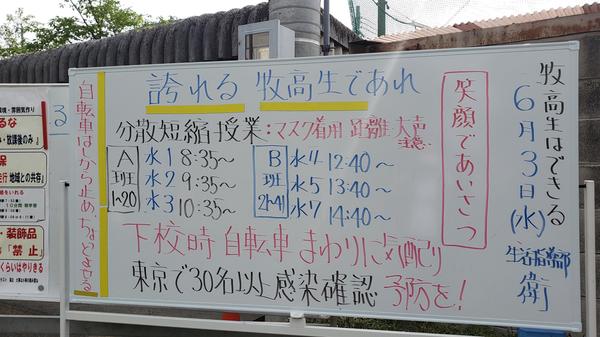 牧高生はできる
6月3日(水)
生活指導部 衛
笑顔であいさつ
誇れる 牧高生であれ
分散短縮授業:マスク着用 距離 大声注意
A班 1~20
水1 8:35~
水2 9:35~
水3 10:35~
B班 21~41
水4 12:40~
水5 13:40~
水7 14:40~
下校時自転車 まわりに気配り
東京で30名以上感染確認 予防を!
る
るな
・放課後のみ」
保
走行 地域との共存」
・装飾品
「禁止」
くらいはやりきる